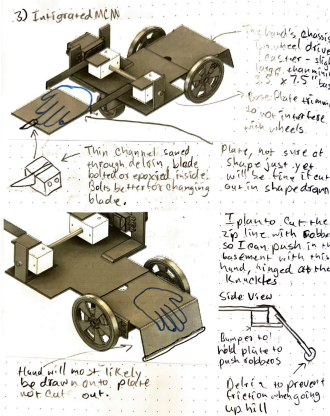 3) Intigrated MCM
The hand's chassis
wheel drive
caster - slig
large channin
3.5" x 7.5" bas
Base Plate trimme
so not interfere
with wheels.
Thin channel sawed
through delrin, blade
bolted or epoxied inside.
Bolts better for changing
blade.
Plate, not sure of
shape just yet
will see fine if cut
out in shape drawn
I plan to cut the
zip line with robbe
so I can push in th
basement with this
hand, hinged at the
knuckles
Side View
Bumper to
hold plate to
push robbers
Delrin to prevent
friction when going
up hill
Hand will most likely
be drawn onto plate
not cut out.